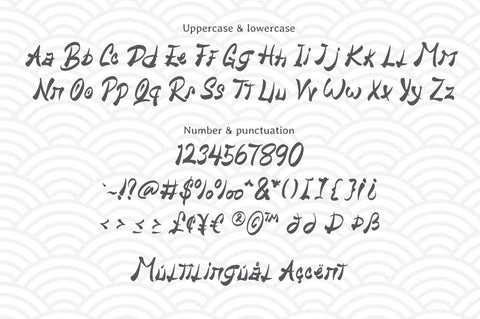 Uppercase & lowercase
Aa Bb Cc Dd Ee Ff Gg Hh Ii Jj Kk Ll Mm
Nn Oo Pp Qq Rr Ss Tt Uu Vv Ww Xx Yy Zz
Number & punctuation
1234567890
`~!?@#$%‰^&*()[]{}¡¿
< > ≤ ≥ £¢¥€ ®©™ ∂ð Ð Þß
Multilinguål Aççënt